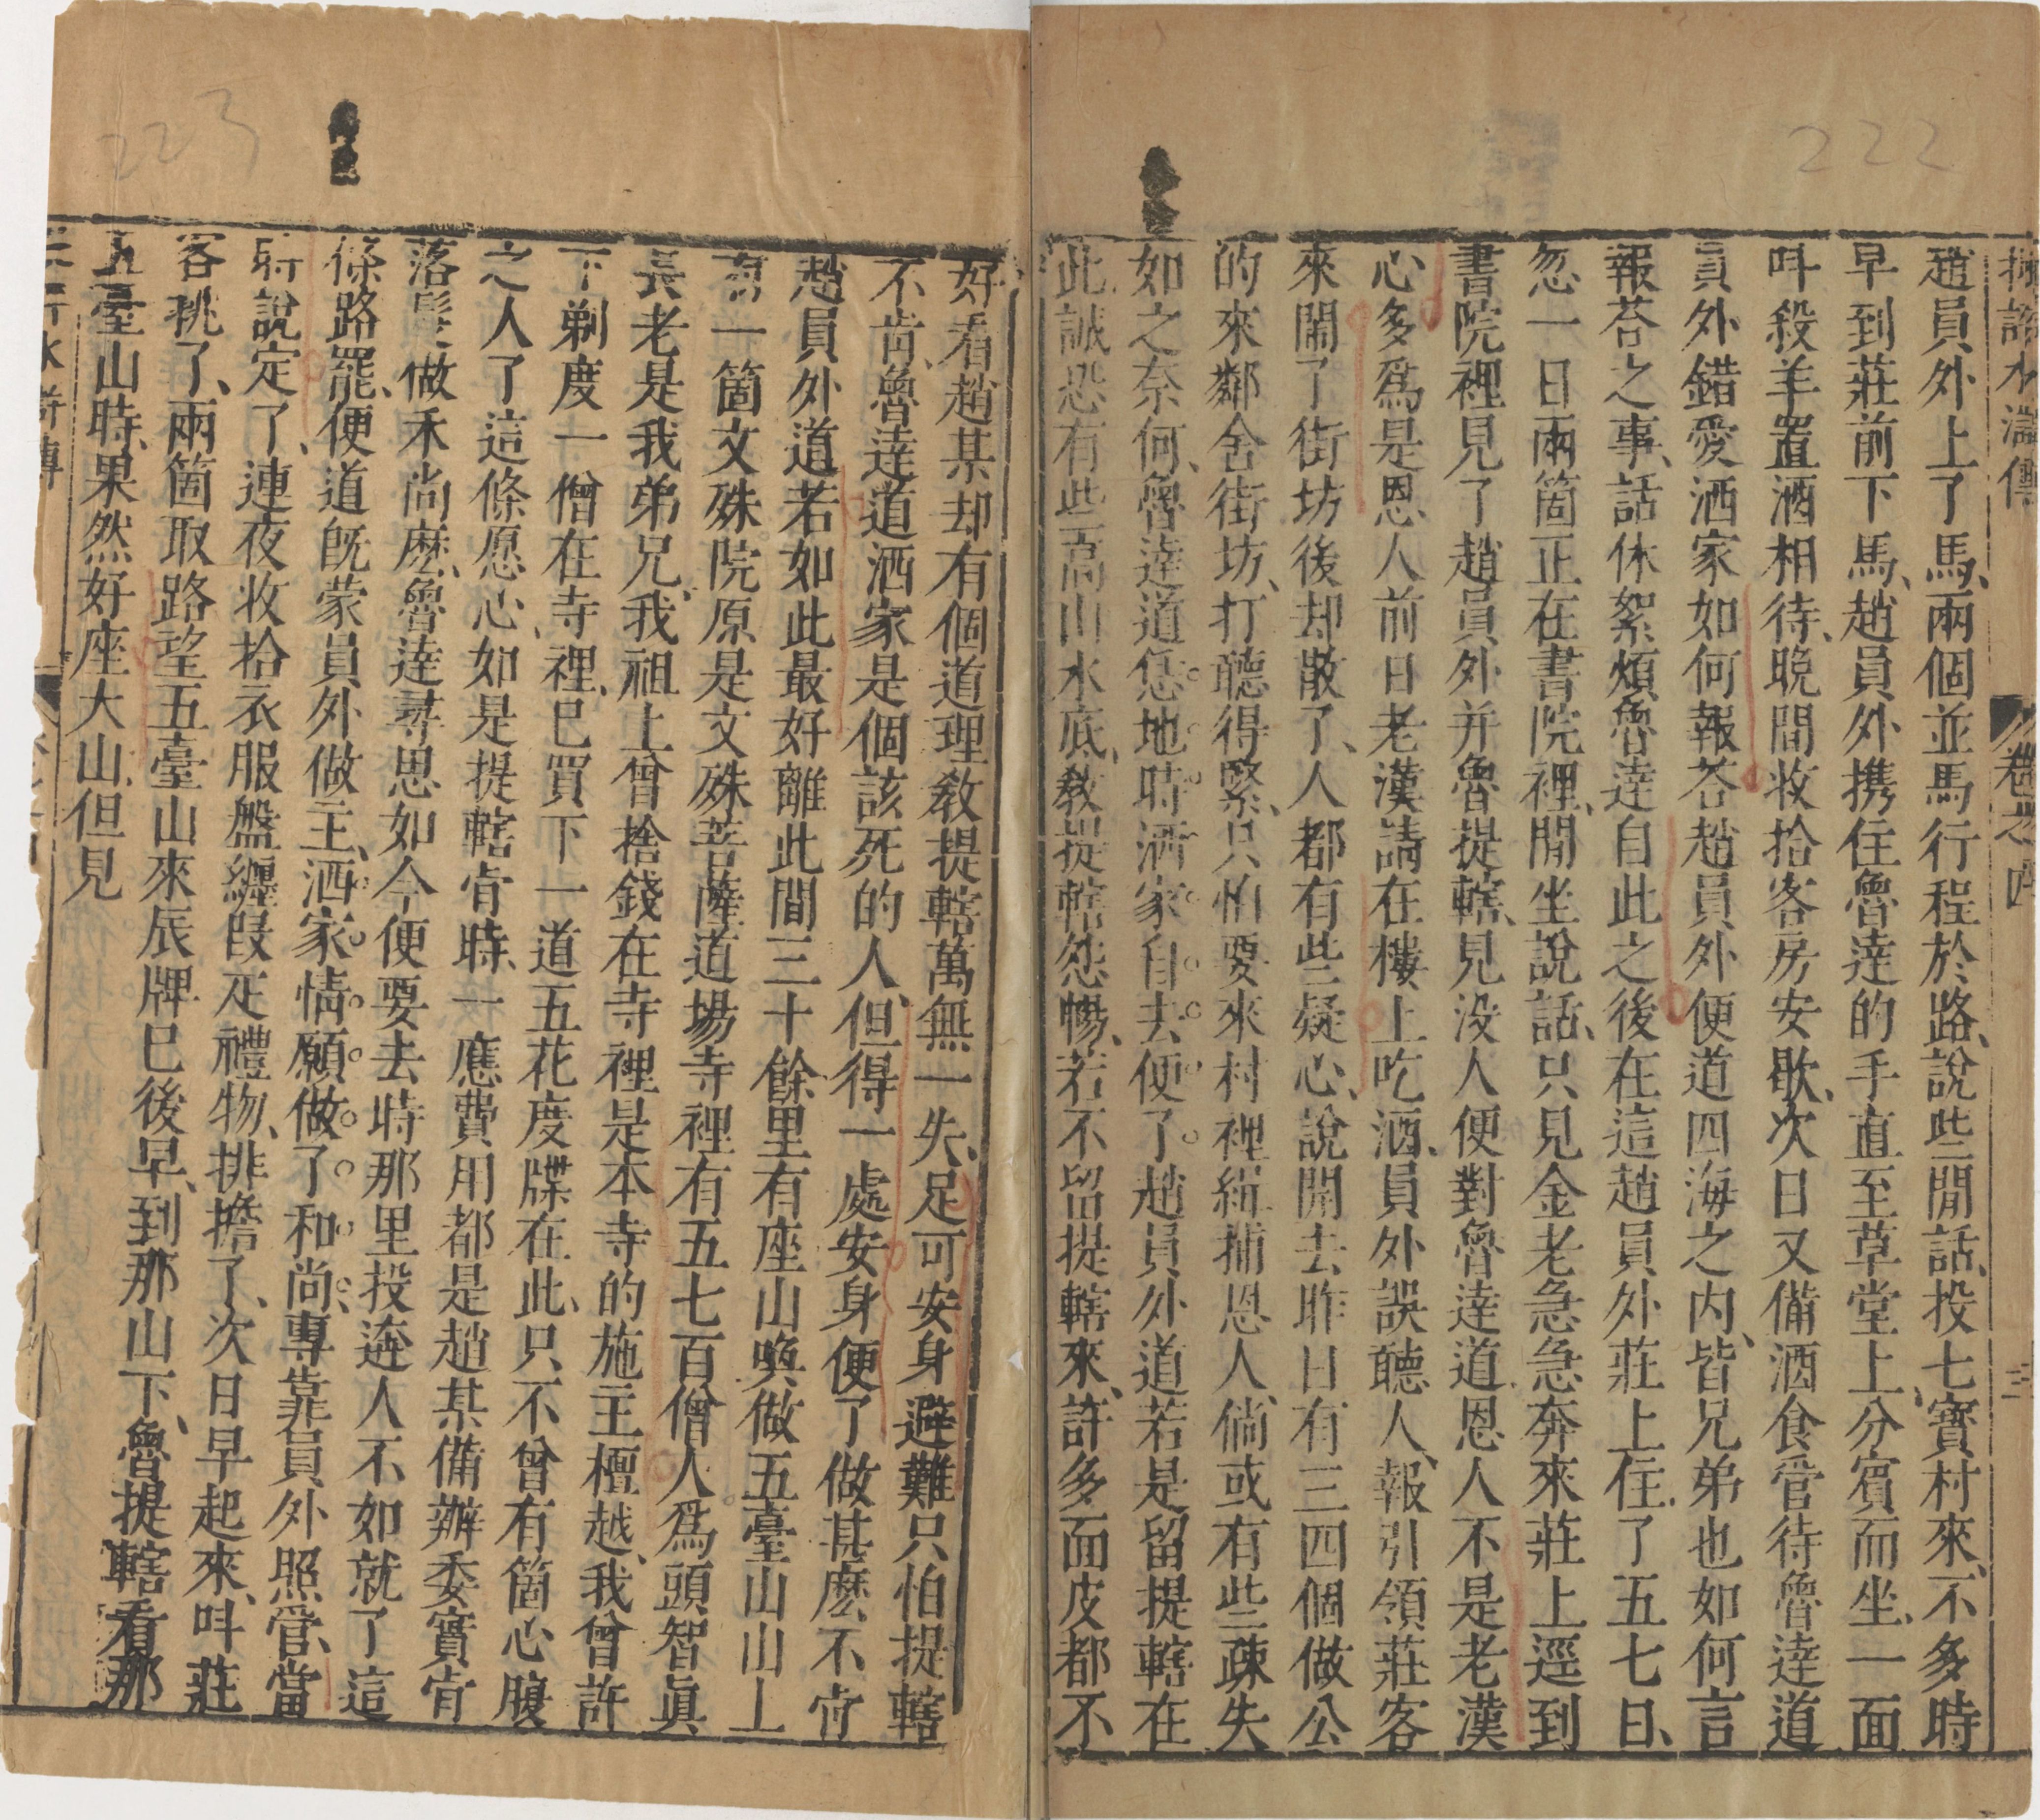 222
卷之四
三
趙員外上了馬、兩個並馬行程於路、說些閒話、投七寶村來、不多時
早到莊前下馬、趙員外携住魯達的手直至草堂上、分賓而坐、一面
呌殺羊置酒相待、晚間收拾客房安歇、次日又備酒食管待魯達道
員外錯愛洒家如何報荅趙員外便道四海之内、皆兄弟也如何言
報荅之事、話休絮煩魯達自此之後在這趙員外莊上住了五七日、
忽一日兩箇正在書院裡、閒坐說話、只見金老急急奔來莊上逕到
書院裡見了趙員外并魯提轄、見没人便對魯達道恩人不是老漢
心多爲是恩人前日老漢請在樓上吃酒、員外誤聽人、報引領莊客
來鬧了街坊後却散了、人都有些疑心、說開去昨日有三四個做公
的來鄰舍街坊、打聽得緊、只怕要來村裡緝捕恩人、倘或有些疎失
如之奈何、魯達道恁地時洒家自去便了趙員外道若是留提轄在
此、誠恐有些高山水底、教提轄怨暢、若不留提轄來、許多面皮都不
223
好看趙某却有個道理教提轄萬無一失、足可安身避難只怕提轄
不肯、魯達道洒家是個該死的人、但得一處安身便了做甚麽不肯
趙員外道若如此最好離此間三十餘里有座山喚做五臺山山上
有一箇文殊院原是文殊菩薩道場寺裡有五七百僧人爲頭智眞
長老是我弟兄、我祖上曾捨錢在寺裡是本寺的施主檀越、我曾許
下剃度一僧在寺裡、已買下一道五花度牒在此、只不曾有箇心腹
之人了這條愿心、如是提轄肯時、一應費用都是趙某備辦委實肯
落髮做禾尚麽、魯達尋思如今便要去時那里投遶人不如就了這
條路罷、便道旣蒙員外做主、洒家情願做了和尚、專靠員外照管、當
時說定了、連夜收拾衣服盤纏叚疋禮物、排擔了、次日早起來、呌莊
客挑了、兩箇取路望五臺山來辰牌已後早、到那山下、魯提轄看那
五臺山時、果然好座大山、但見